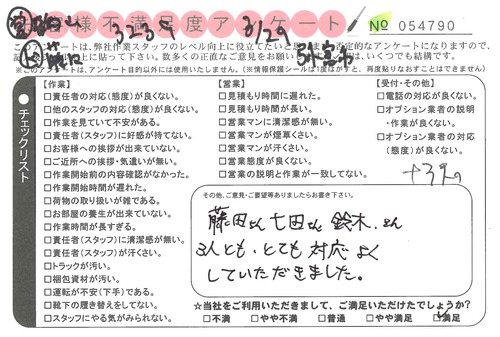 お客様不満足度アンケート
№ 054790
3/29
このアンケートは、弊社作業スタッフのレベル向上に役立てたいと
否定的なアンケートになりますので、
に貼って下さい。数多くの正直なご意見をお
いくつでも結構です。
※このアンケートは、アンケート目的以外には使用いたしません。(※情報保護シールは1度はがすと、再度貼りなおすことはできません)
チェックリスト
【作業】
□責任者の対応(態度)が良くない。
□他のスタッフの対応(態度)が良くない。
□作業を見ていて不安がある。
□責任者(スタッフ)に好感が持てない。
□お客様への挨拶が出来ていない。
□ご近所への挨拶・気遣いが無い。
□作業開始前の内容確認がなかった。
□作業開始時間が遅れた。
□荷物の取り扱いが雑である。
□お部屋の養生が出来ていない。
□作業時間が長すぎる。
□責任者(スタッフ)に清潔感が無い。
□責任者(スタッフ)が汗くさい。
□トラックが汚い。
□梱包資材が汚い。
□運転が不安(下手)である。
□靴下の履き替えをしてない。
□スタッフにやる気がみられない。
【営業】
□見積もり時間が遅れた。
□見積もり時間が長い。
□営業マンに清潔感が無い。
□営業マンが煙草くさい。
□営業マンが汗くさい。
□営業態度が良くない。
□営業の説明と作業が一致してない。
【受付・その他】
□電話の対応が良くない。
□オプション業者の説明
・作業が良くない。
□オプション業者の対応
(態度)が良くない。
その他、ご意見・ご要望等ありましたらお書き下さい。
藤田さん 七田さん 鈴木さん
3人とも、とても対応よく
していただきました。
☆当社をご利用いただきまして、ご満足いただけたでしょうか?
□不満 □やや不満 □普通 □やや満足 ☑満足